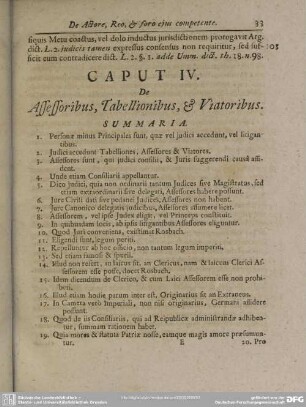 De Actore, Reo, & foro ejus competente. 33
siquis Metu coactus, vel dolo inductus jurisdictionem prorogavit Arg.
dict. L. 2. judicis tamen expressus consensus non requiritur, sed suf-
ficit eum contradicere dict. L. 2. §. 1. adde Umm. dict. th. 18. n. 98.
CAPUT IV.
De
Assessoribus, Tabellionibus, & Viatoribus.
SUMMARIA.
1. Personæ minus Principales sunt, quæ vel judici accedunt, vel litigan-
tibus.
2. Judici accedunt Tabelliones, Assessores & Viatores.
3. Assessores sunt, qui judici consilii, & Juris suggerendi causâ assi-
dent.
4. Unde etiam Consiliarii appellantur.
5. Dico Judici, quia non ordinarii tantum Judices sive Magistratus, sed
etiam extraordinarii sive delegati, Assessores habere possunt.
6. Jure Civili dati sive pedanei Judices, Assessores non habent.
7. Jure Canonico delegatus judicibus, Assessores assumere licet.
8. Assessorem, vel ipse Judex eligit, vel Princeps constituit.
9. In quibusdam locis, ab ipsis litigantibus Assessores eliguntur.
10. Quod Juri conveniens, existimat Rosbach.
11. Eligendi sunt, legum periti.
12. Repelluntur ab hoc officio, non tantum legum imperiti,
13. Sed etiam
14. Illud non refert, an laicus sit, an Clericus, nam & laicum Clerici As-
sessorem esse posse, docet Rosbach.
15. Idem dicendum de Clerico, & eum Laici Assessorem esse non prohi-
beri.
16. Illud etiam hodie parum inter est, Originarius sit an Extraneus.
17. In Camera verò Imperiali, non nisi originarius, Germanus assidere
possunt.
18. Quod de iis Consiliariis, qui ad Reipublicæ administrandæ adhiben-
tur, summam rationem habet.
19. Quia mores & statuta Patriæ nosse, eamque magis amore præsumun-
tur.
E 20. Pro